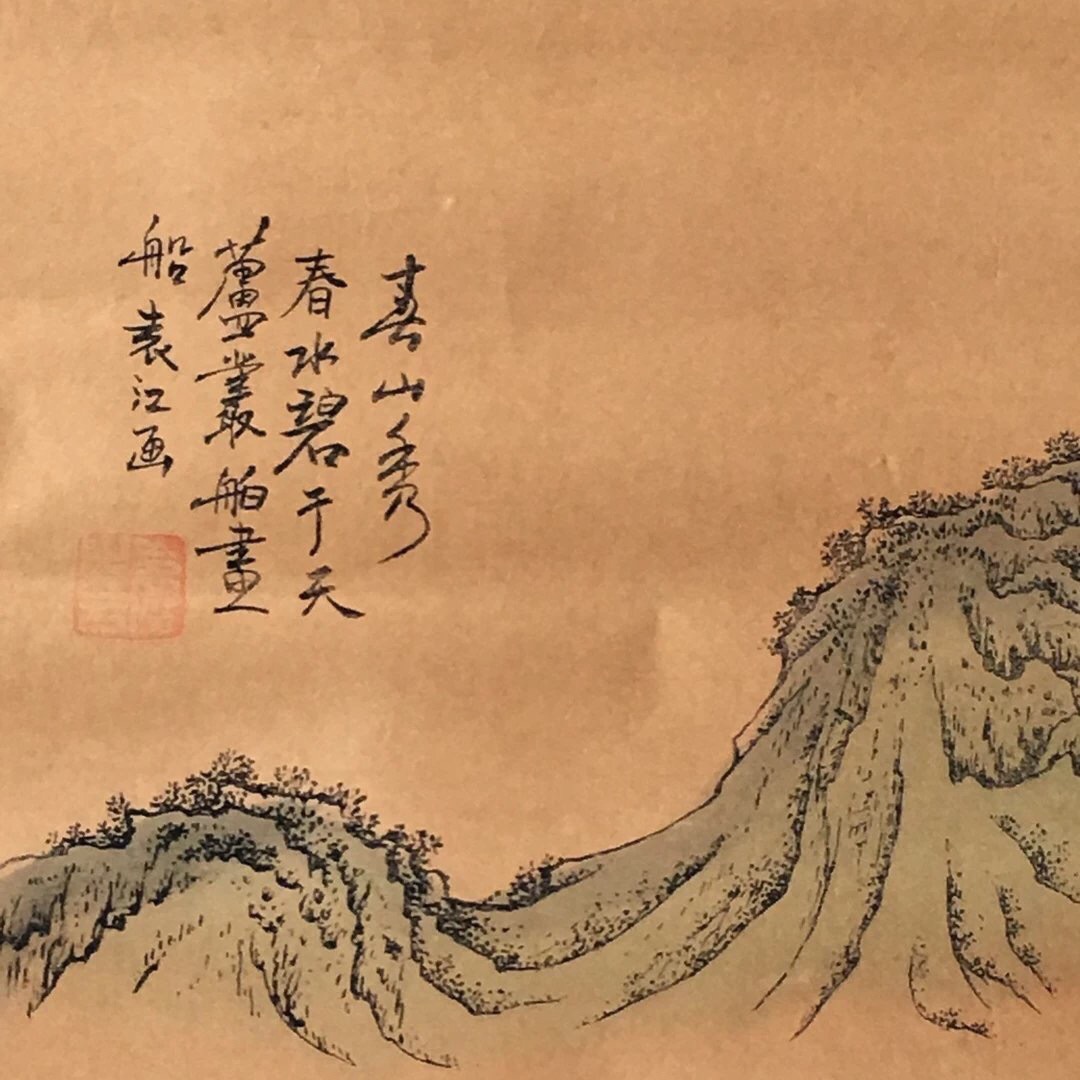 春山秀
春水碧于天
蘆叢舶畫
船 袁江画